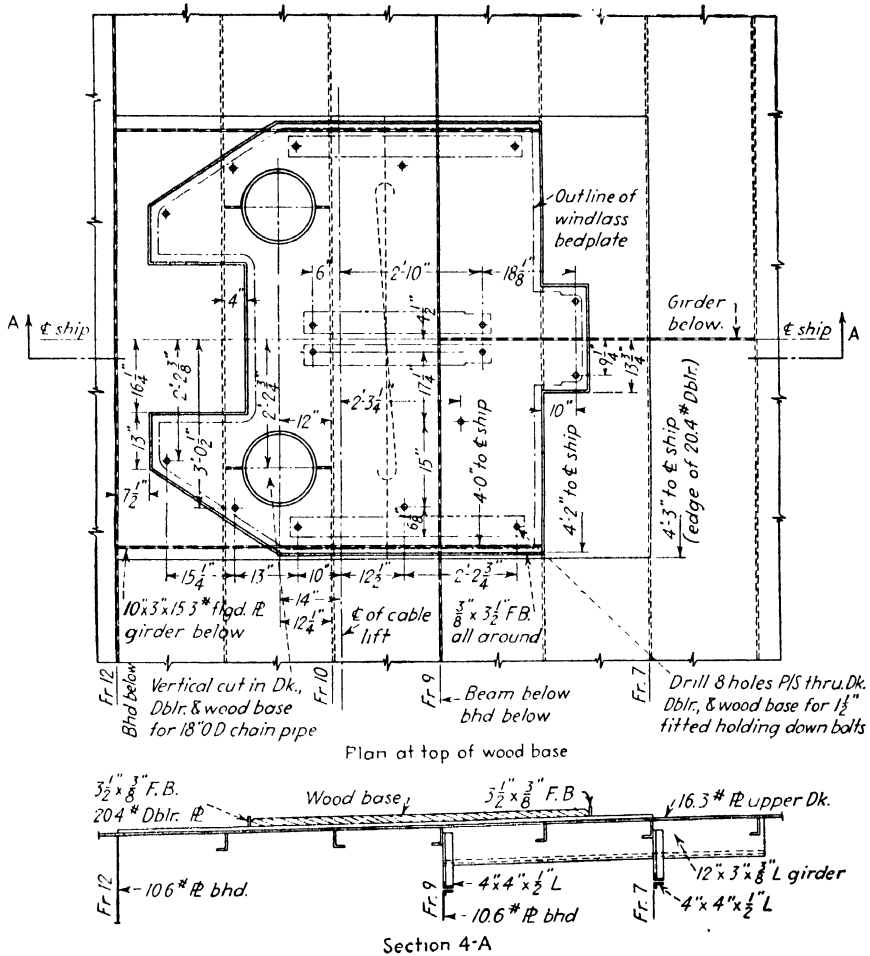 Outline of
windlass
bedplate
6"
2'-10"
18 1/8"
4"
4 1/2"
Girder
below.
A
℄ ship
℄ ship
A
16 1/4"
2'-2 3/8"
2'-2 3/4"
17 1/4"
9 1/4"
13 3/4"
2'-3 1/4"
12"
10"
13"
3'-0 1/2"
15"
4'-0" to ℄ ship
4'-2" to ℄ ship
4'-3" to ℄ ship
(edge of 20.4 # Dblr.)
7 1/2"
6 1/8"
15 1/4"
13"
10"
12 1/2"
2'-2 3/4"
14"
12 1/4"
10"x3"x15 3 # flgd. ⅊
girder below
℄ of cable
lift
3/8" x 3 1/2" F.B.
all around
Fr 12
Bhd below
Vertical cut in Dk.,
Dblr. & wood base
for 18" O D chain pipe
Fr 10
Fr 9
Beam below
bhd below
Fr. 7
Drill 8 holes P/S thru. Dk.
Dblr., & wood base for 1 1/2"
fitted holding down bolts
Plan at top of wood base
3 1/2" x 3/8" F.B.
204 # Dblr. ⅊
Wood base
3 1/2" x 3/8" F.B
16.3 # ⅊ upper Dk.
Fr 12
10 6 # ⅊ bhd.
Fr. 9
4"x 4"x 1/2" L
10.6 # ⅊ bhd
Fr. 7
12" x 3" x 3/8" L girder
4" x 4" x 1/2" L
Section 4-A